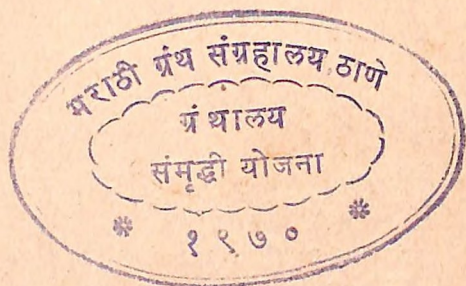 मराठी ग्रंथ संग्रहालय, ठाणे
ग्रंथालय
संमृद्धी योजना
* १९७० *